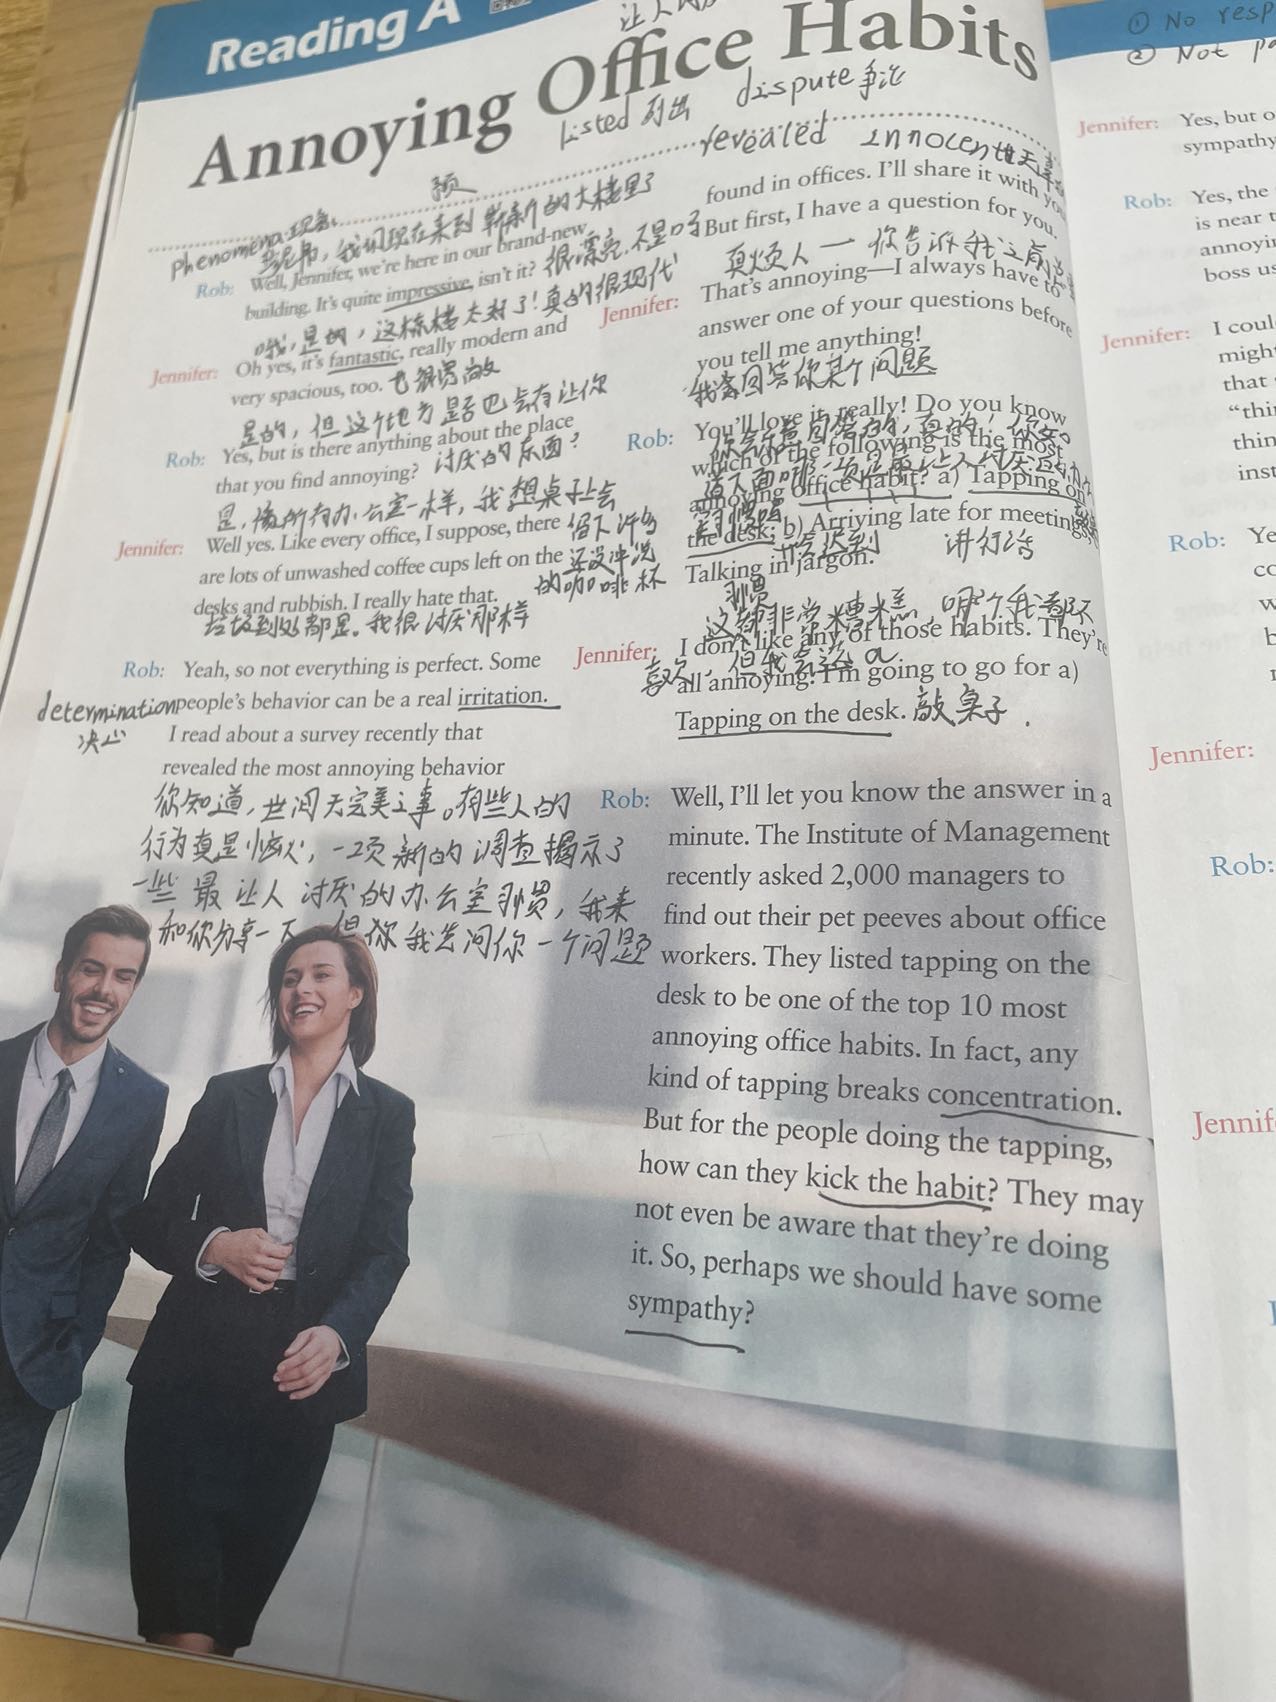 Reading A
① No resp
② Not
Annoying Office Habits
listed 列出
dispute 争论
revealed
phenomena 现象
我们现在来到崭新的大楼里了
Rob: Well, Jennifer, we're here in our brand-new
building. It's quite impressive, isn't it? 很漂亮不是吗
哦,是的,这栋楼太好了!真的很现代
Jennifer: Oh yes, it's fantastic, really modern and
very spacious, too. 也很宽敞
是的,但这个地方是否也会有让你
Rob: Yes, but is there anything about the place
that you find annoying? 讨厌的东西?
是,像所有办公室一样,我想桌子上会
Jennifer: Well yes. Like every office, I suppose, there 留下许多
are lots of unwashed coffee cups left on the 还没冲洗
desks and rubbish. I really hate that. 的咖啡杯
垃圾到处都是。我很讨厌那样
Rob: Yeah, so not everything is perfect. Some
people's behavior can be a real irritation.
determination
决心
I read about a survey recently that
revealed the most annoying behavior
你知道,世间无完美之事。有些人的
行为真是恼火,一项新的调查揭示了
一些最让人讨厌的办公室习惯,我来
和你分享一下 但你我先问你一个问题
found in offices. I'll share it with you
But first, I have a question for you.
真烦人一你告诉我之前总
Jennifer: That's annoying—I always have to
answer one of your questions before
you tell me anything!
我需回答你某个问题
Rob: You'll love it, really! Do you know
which of the following is the most
annoying office habit? a) Tapping on
the desk; b) Arriving late for meetings;
迟到 讲行话
Talking in jargon.
习惯
这都非常糟糕,哪个我都不
Jennifer: I don't like any of those habits. They're
喜欢,但我会选 a
all annoying! I'm going to go for a)
Tapping on the desk. 敲桌子.
Rob: Well, I'll let you know the answer in a
minute. The Institute of Management
recently asked 2,000 managers to
find out their pet peeves about office
workers. They listed tapping on the
desk to be one of the top 10 most
annoying office habits. In fact, any
kind of tapping breaks concentration.
But for the people doing the tapping,
how can they kick the habit? They may
not even be aware that they're doing
it. So, perhaps we should have some
sympathy?
Jennifer: Yes, but o
sympathy
Rob: Yes, the
is near t
annoyin
boss us
Jennifer: I coul
might
that
"thi
thin
inst
Rob: Ye
co
w
b
Jennifer:
Rob:
Jennif